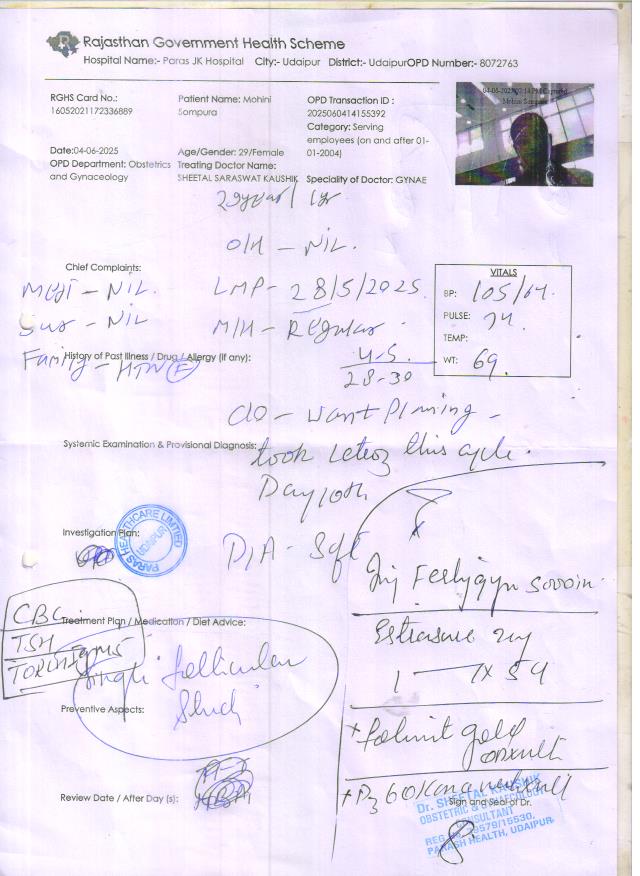 Rajasthan Government Health Scheme
Hospital Name:- Paras JK Hospital City:- Udaipur District:- UdaipurOPD Number:- 8072763
RGHS Card No.:
16052021172336889
Patient Name: Mohini
Sompura
OPD Transaction ID :
2025060414155392
Category: Serving
employees (on and after 01-
01-2004)
Date:04-06-2025
OPD Department: Obstetrics
and Gynaceology
Age/Gender: 29/Female
Treating Doctor Name:
SHEETAL SARASWAT KAUSHIK
Speciality of Doctor: GYNAE
Mohini Sompura
29year/1yr
O/H - NIL.
Chief Complaints:
NIL.
LMP- 28/5/2025.
VITALS
BP: 105/64.
PULSE: 74
TEMP:
WT: 69.
Sur - NIL
M/H - Regular
4-5
28-30
Family - HTN (F)
History of Past Illness / Drug / Allergy (if any):
c/o - want Planning -
Systemic Examination & Provisional Diagnosis:
took letroz this cycle.
Day 10th
Investigation Plan:
PARAS HEALTHCARE LIMITED
UDAIPUR
P/A - Soft
Inj Fertigyn 5000iu
CBC
TSH
Treatment Plan / Medication / Diet Advice:
follicular
Study
Estrasure 2mg
Preventive Aspects:
+ Folinit gold
Review Date / After Day (s):
Sign and Seal of Dr.
Dr. SHEETAL KAUSHIK
OBSTETRIC & GYNAECOLOGY
CONSULTANT
PARASH HEALTH, UDAIPUR.